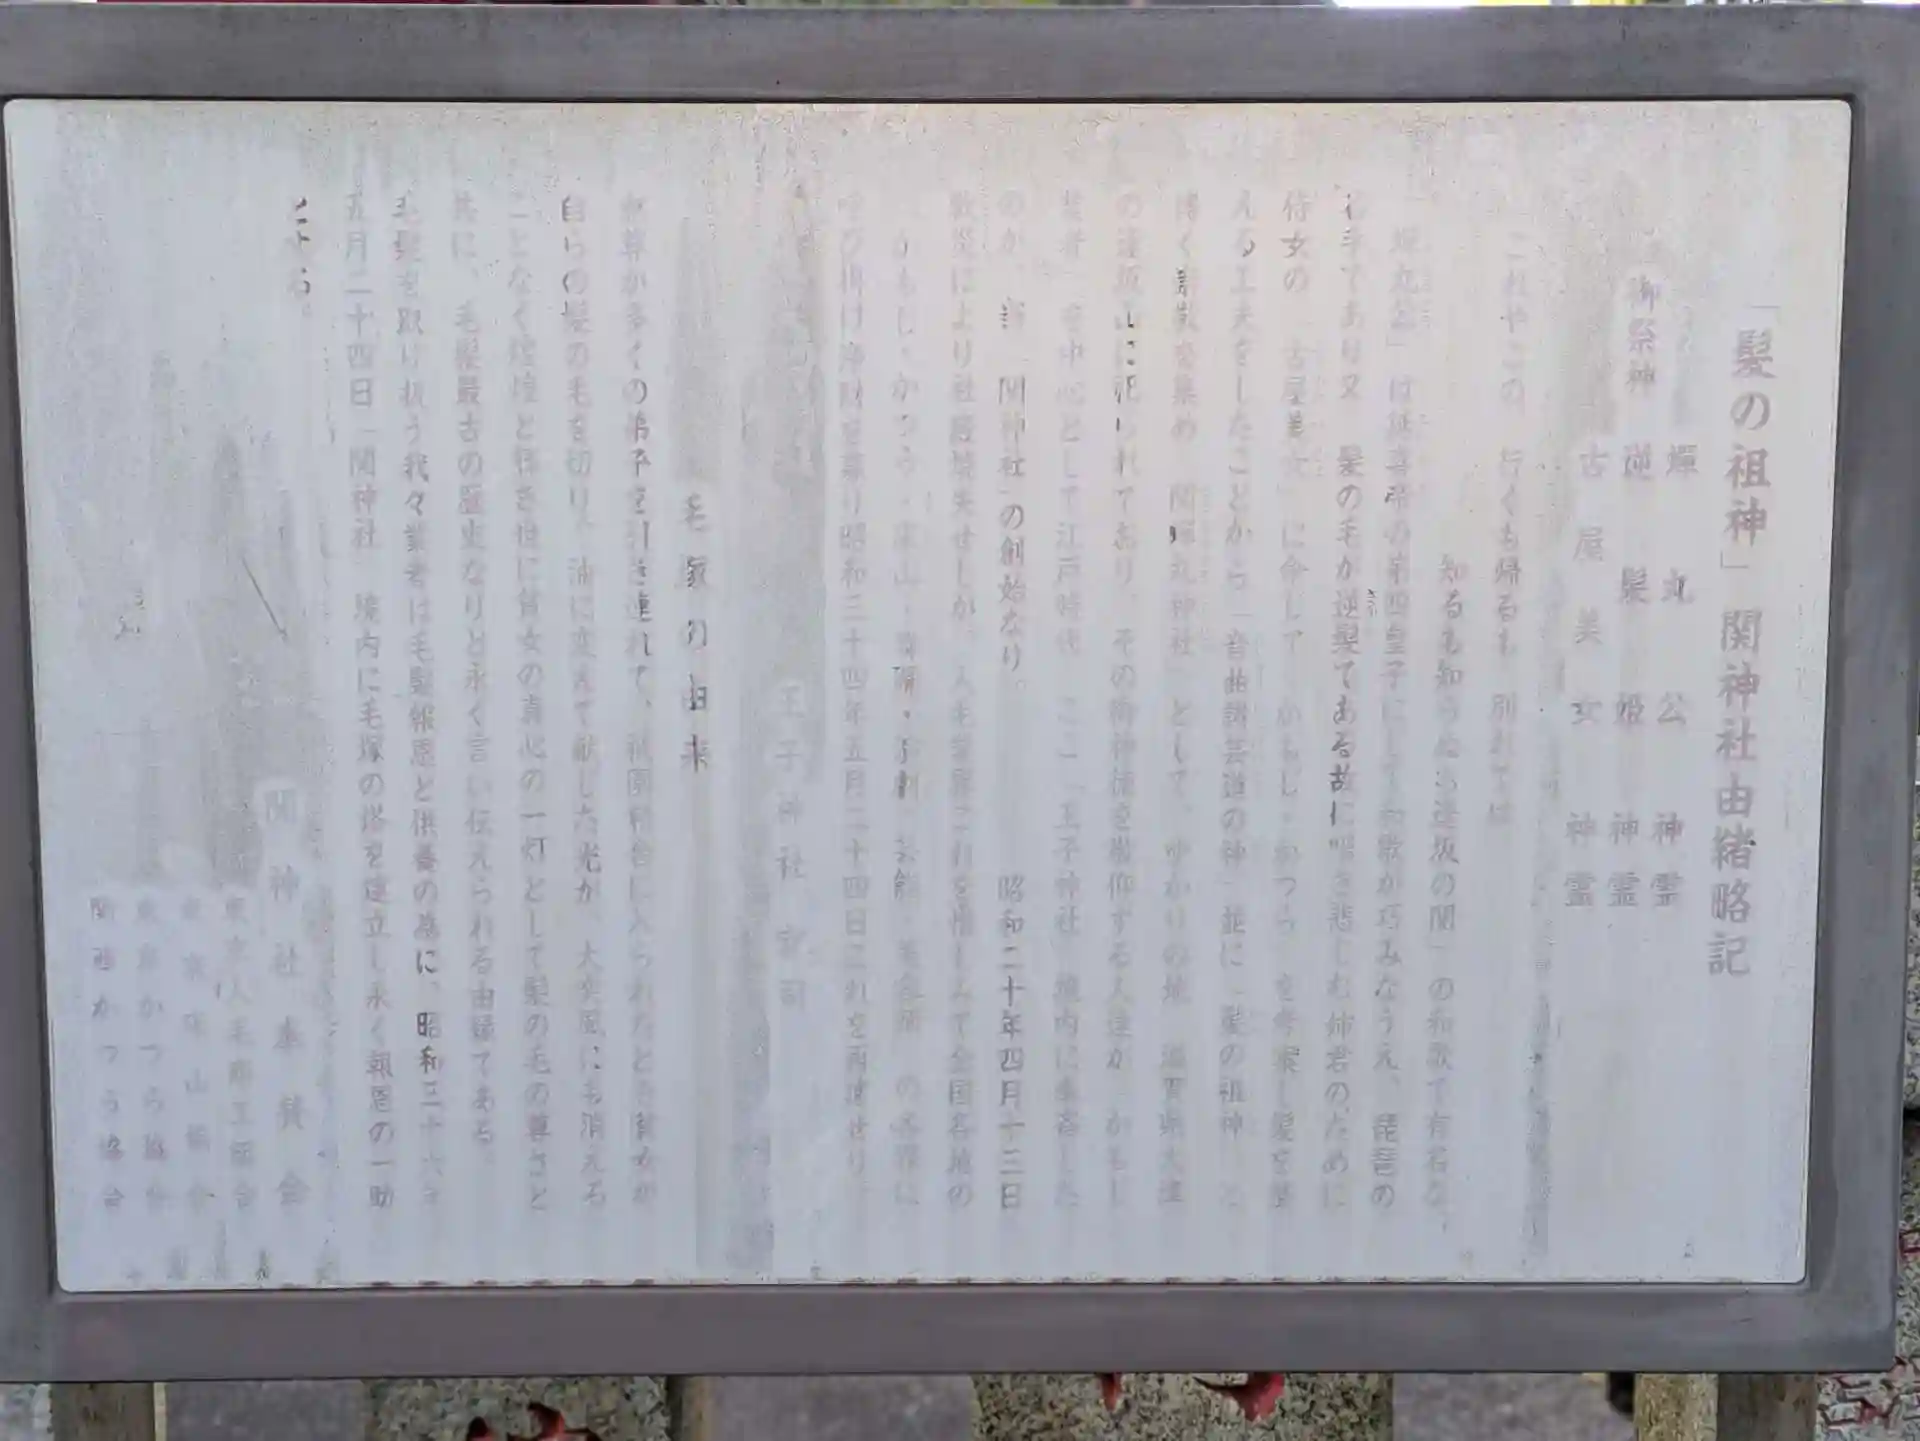 「髪の祖神」関神社由緒略記
蟬丸公神霊
御祭神 逆髪姫神霊
古屋美女神霊
これやこの 行くも帰るも 別れては
知るも知らぬも逢坂の関」の和歌で有名な、
「蟬丸公」は延喜帝の第四皇子にして和歌が巧みなうえ、琵琶の
名手であり又 髪の毛が逆髪である故に嘆き悲しむ姉君のために
侍女の「古屋美女」に命じて かもじ・かつら を考案し髪を整
える工夫をしたことから「音曲諸芸道の神」並に「髪の祖神」と
博く崇敬を集め「関蟬丸神社」として、ゆかりの地 滋賀県大津
の逢坂山に祀られており、その御神徳を崇仰する人達が かもじ
業者 を中心として江戸時代 ここ「王子神社」境内に奉斎した
のが、当「関神社」の創始なり。
昭和二十年四月十三日
戦災により社殿焼失せしが、人毛業界これを惜しみて全国各地の
かもじ・かつら・床山・
呼び掛け浄財を募り昭和三十四年五月二十四日これを再建せり。
王子神社 宮司
毛塚の由来
釈尊が多くの弟子を引き連れて、祇園精舎に入られたとき貧女が
自らの髪の毛を切り、油に変えて献じた光が、大突風にも消える
ことなく煌煌と輝き世に貧女の真心の一灯として髪の毛の尊さと
共に、毛髪最古の歴史なりと永く言い伝えられる由縁である。
毛髪を取り扱う我々業者は毛髪報恩と供養の為に、昭和三十六年
五月二十四日「関神社」境内に毛塚の塔を建立し永く報恩の一助
とする。
関神社奉賛会
東京人毛商工組合
東京床山協会
東京かつら協会
関西かつら協会